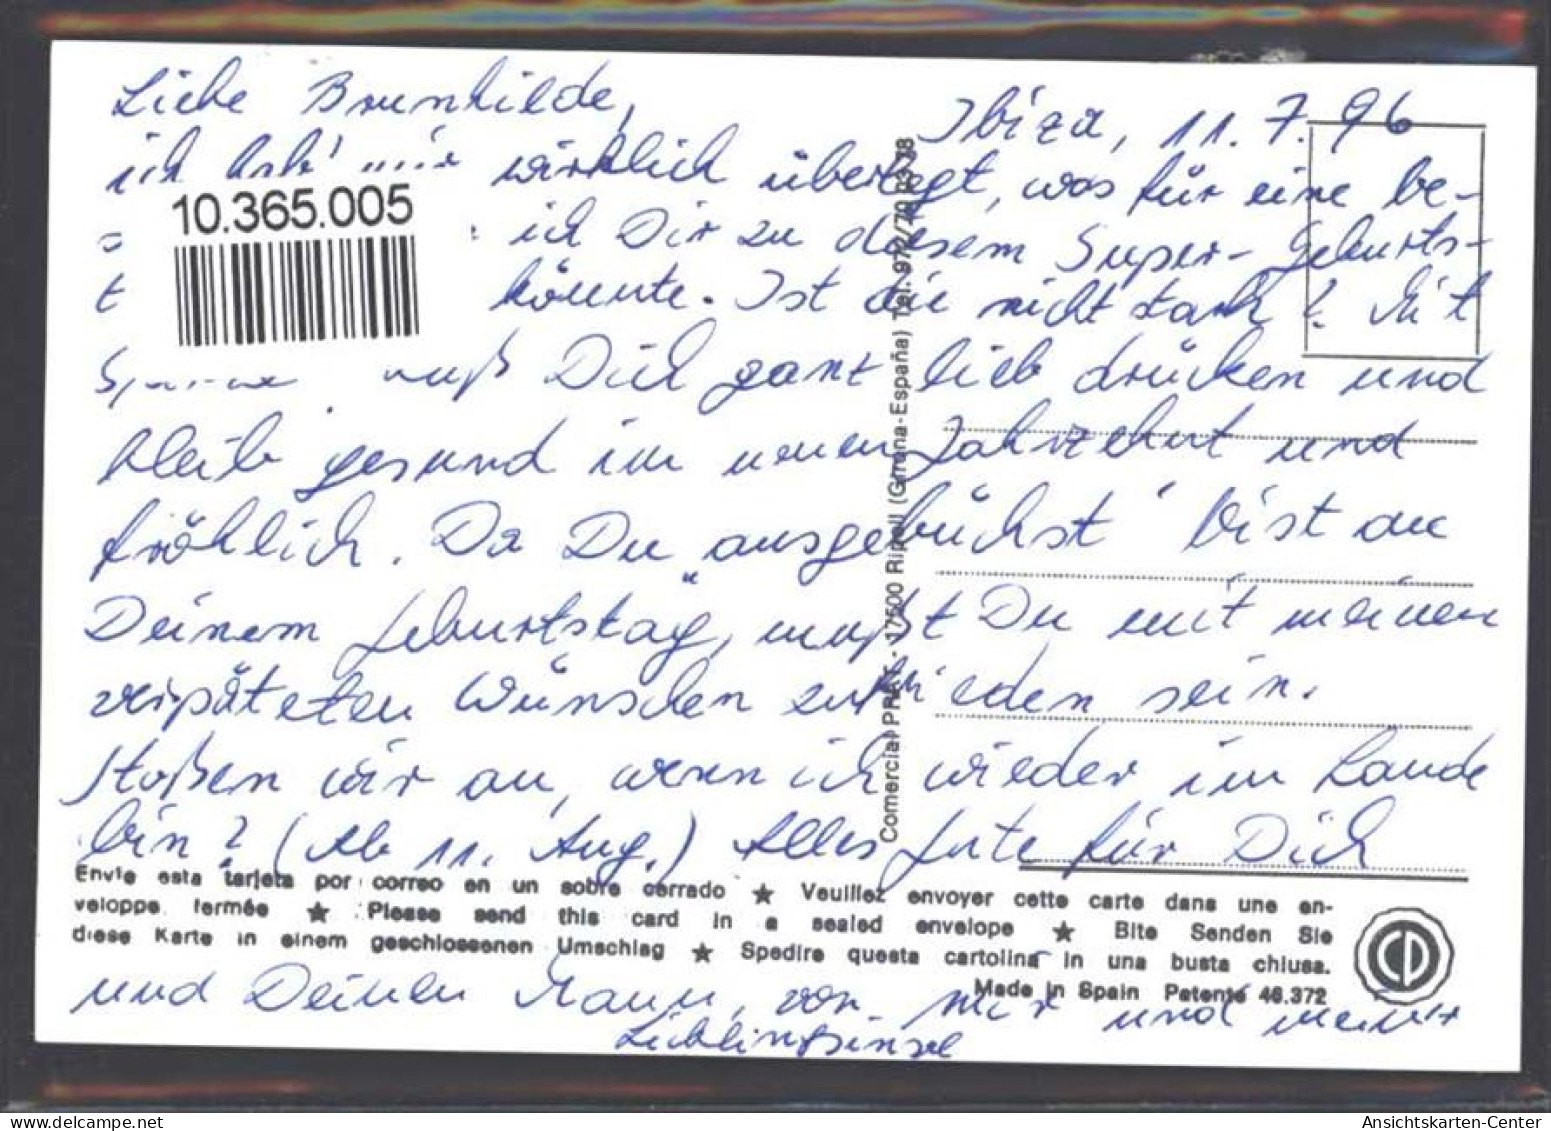 Liebe Brunhilde,
Ibiza, 11.7.96
ich hab' mir wirklich überlegt, was für eine be-
10.365.005
ich Dir zu diesem Super-Geburts-
t könnte. Ist die nicht stark? Mit
muß Dich ganz lieb drücken und
bleib gesund im neuen Jahrzehnt und
fröhlich. Da Du "ausgebüchst" bist an
Deinem Geburtstag, mußt Du mit meinen
verspäteten Wünschen zufrieden sein.
Stoßen wir an, wenn ich wieder im Lande
bin? (Ab 11. Aug.) Alles Gute für Dich
Comercial PRAT. - 17500 Ripoll (Girona-España) Tel. 972/70
Envíe esta tarjeta por correo en un sobre cerrado ★ Veuillez envoyer cette carte dans une en-
veloppe fermée ★ Please send this card in a sealed envelope ★ Bite Senden Sie
diese Karte in einem geschlossenen Umschlag ★ Spedire questa cartolina in una busta chiusa.
Made in Spain Patente 46.372
CP
und Deinen Mann, von mir und meiner
Lieblingsinsel
Ansichtskarten-Center